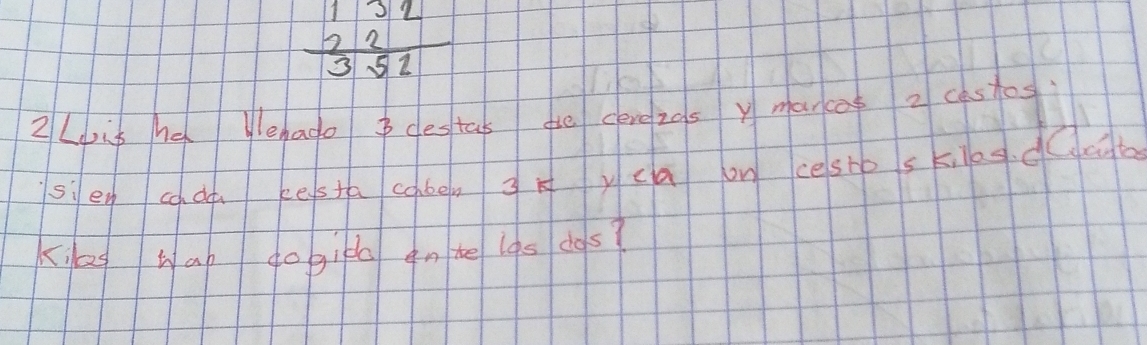 1 32
2 2
3 52
2 Luis ha llenado 3 cestas de cerezas y marcos 2 cestos.
si en cada cesta caben 3 K y ca un cesto 5 kilos. ¿Cuántos
Kilos han cogido ente los dos?